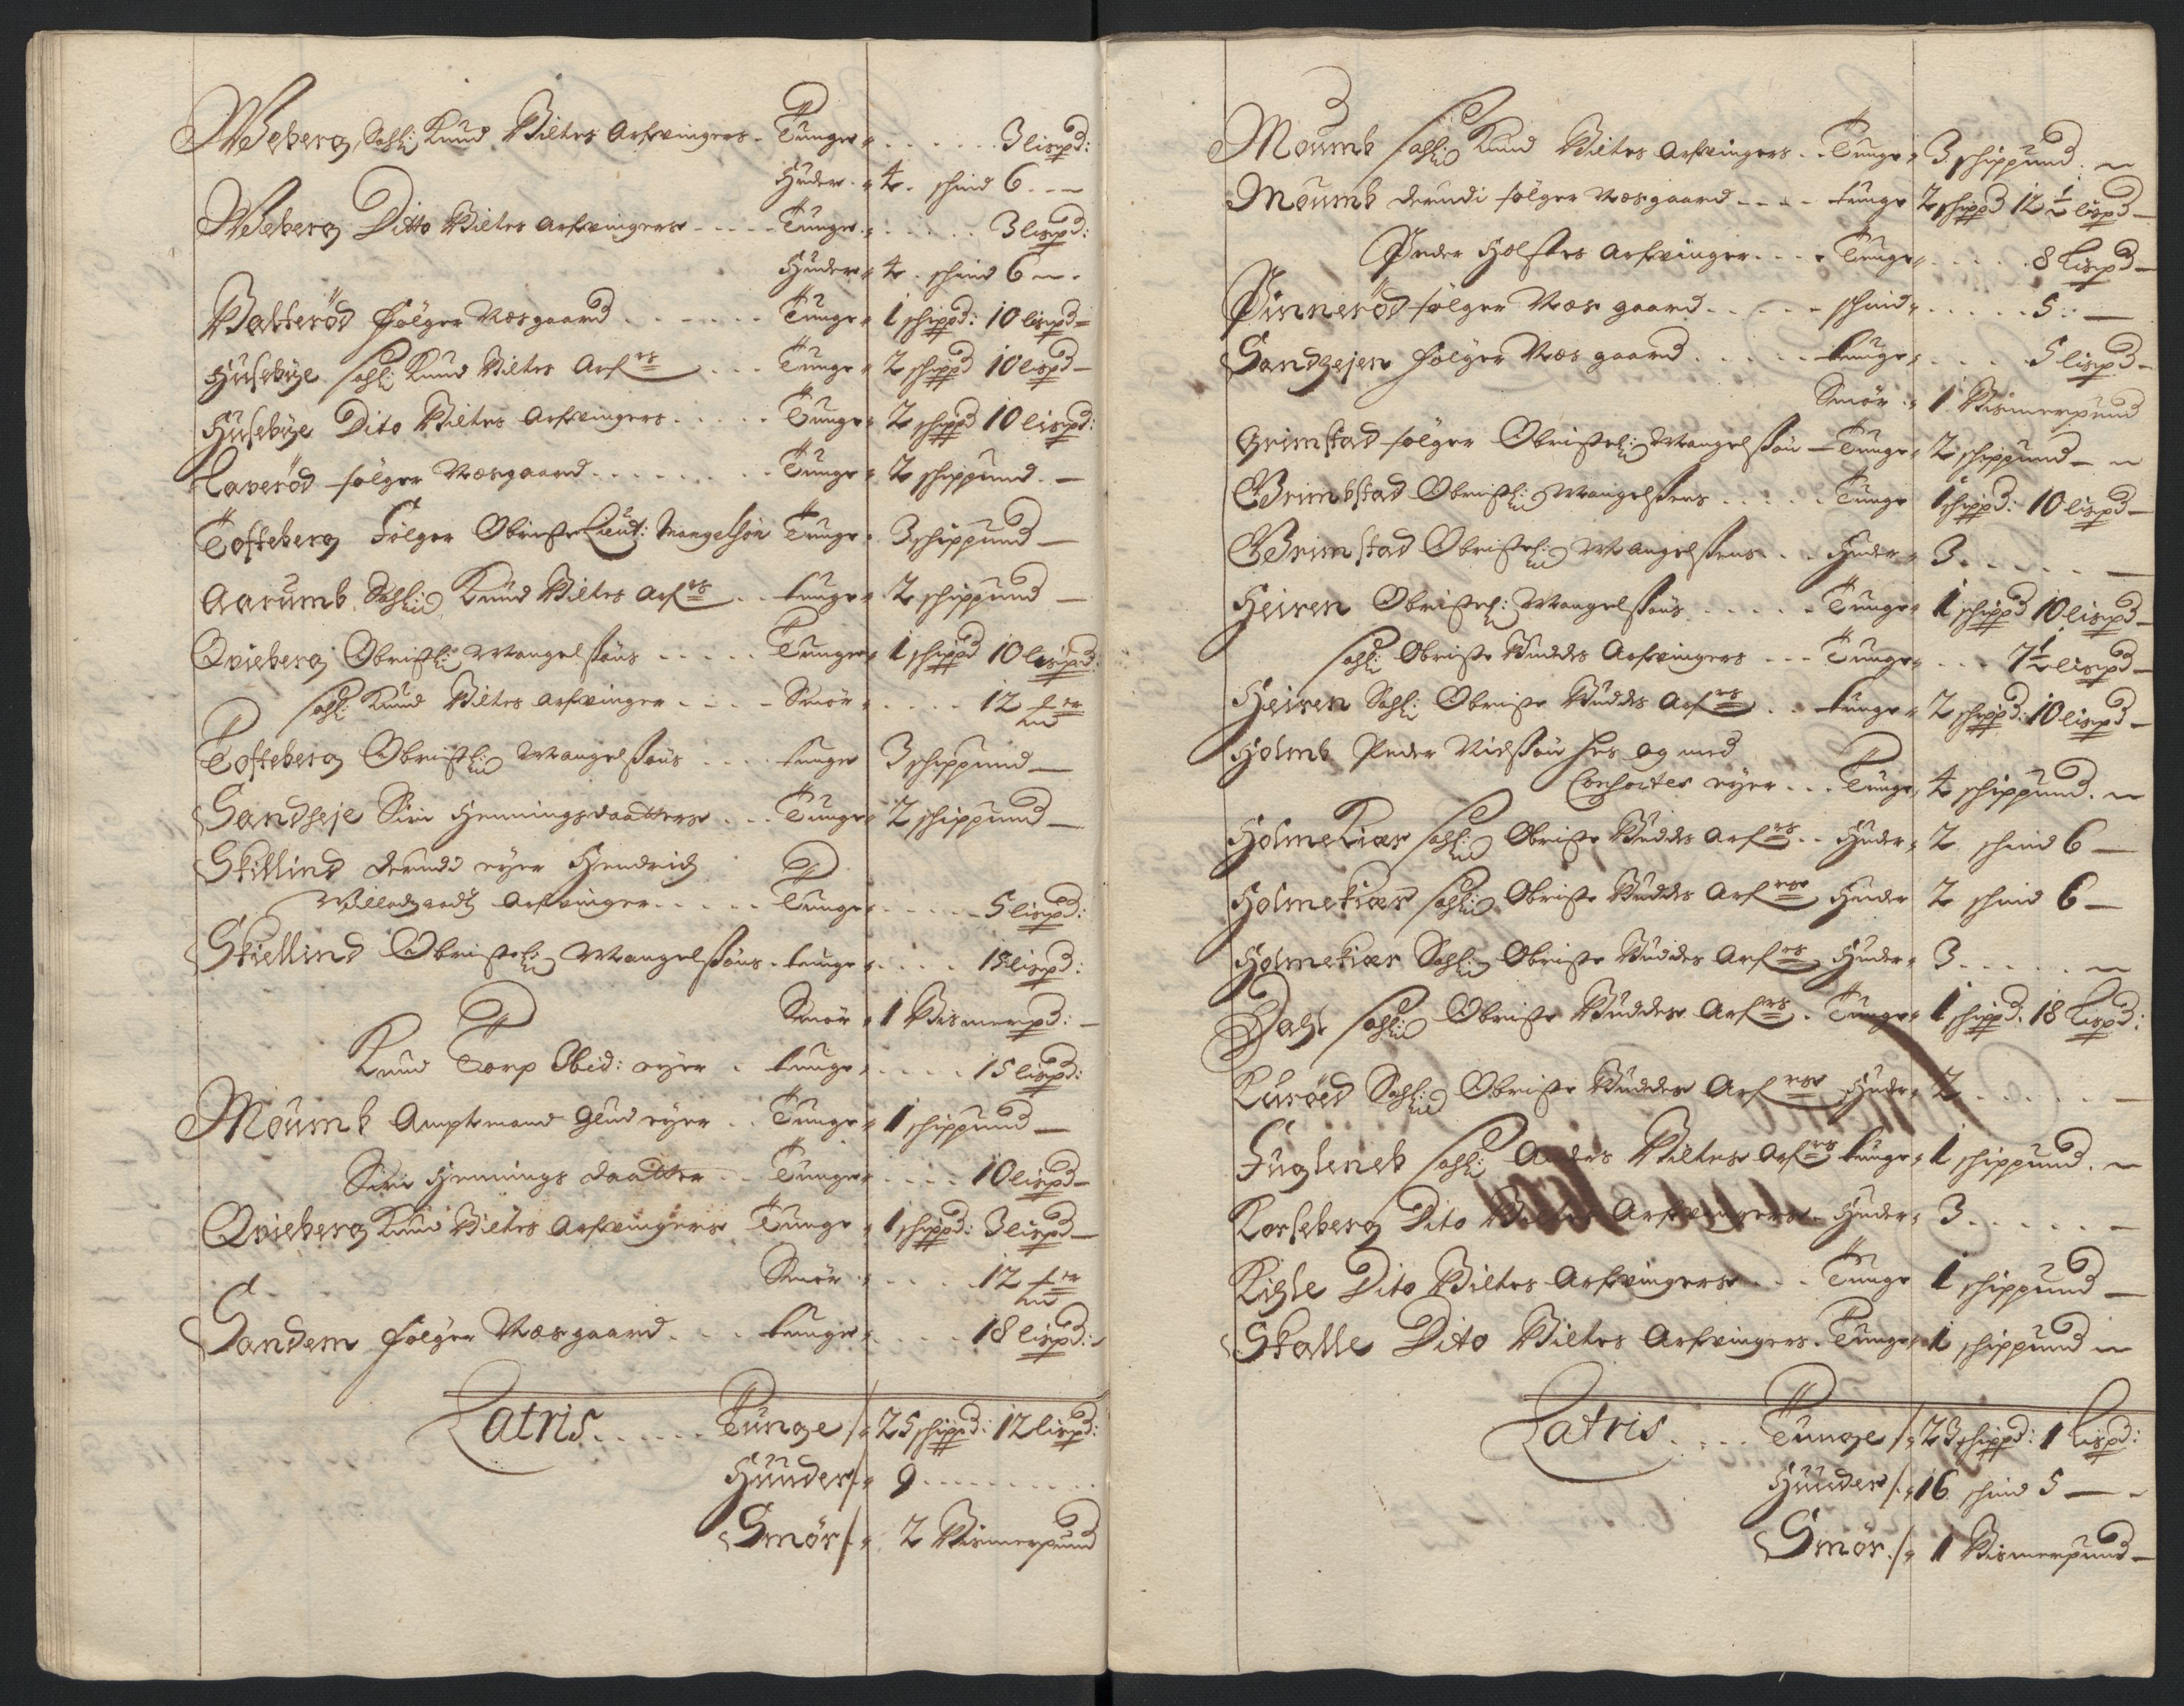 Weberg, Sahlig Knud Biltes Arfvingers. Tunge " ..... 3 lispd:
Huder. " 4. schind 6 . . -
Weberg Ditto Biltes Arfvingers ..... Tunge. " ..... 3 lispd:
Huder " 4. schind 6 - .
Batterød følger Næsgaard ...... Tunge " 1 schippd: 10 lispd =
Husebÿe Sahl: Knud Biltes Arf rs ... Tunge " 2 schippd 10 lispd -
Husebÿe Dito Biltes Arfvingers ..... Tunge " 2 schippd 10 lispd:
Laverød følger Næsgaard ........ Tunge " 2 schippund . -
Tofteberg Følger ObristeLieut: Mangelsøn Tunge " 3 schippund -
Aarumb Sahlig Knud Biltes Arf rs .. tunge " 2 schippund -
Qvieberg Obristl: Mangelsøns ..... Tunge " 1 schippd 10 lispd:
Sahl: Knud Biltes Arfvinger .... Smør " .... 12
Tofteberg Obristl: Mangelsøns .... tunge 3 schippund -
Sandheje Siri Henningsdaatters ... Tunge " 2 schippund -
Skillind derudi eyer Hendrich
Arfvinger ..... Tunge " ..... 5 lispd:
Skiellind Obristel: Mangelsøns . tunge " .... 15 lispd:
Smør " 1 Bismerpd: -
Knud Torp Ibid: eyer . tunge " .... 15 lispd:
Moumb Amptmand Glud eyer .. Tunge " 1 schippund -
Siri Hennings daatter .. Tunge " .... 10 lispd -
Qvieberg Knud Biltes Arfvingers Tunge " 1 schippd: 3 lispd -
Smør " .... 12
Sandem følger Næsgaard .... tunge " .... 18 lispd:
Latris ...... Tunge /" 25 schippd: 12 lispd:
Huuder /" 9 ..........
Smør /" 2 Bismerpund
Moumb Sahlig Knud Biltes Arfvingers .. Tunge " 3 schippund . -
Moumb derudi følger Næsgaard .... tunge 2 schippd 12 ½ lispd -
Peder Holstes Arfvinger .... Tunge " ..... 8 Lispd -
Pinnerød følger Næs gaard ..... schind " ..... 5: -
Sandhejen følger Næs gaard ..... tunge " .... 5 lispd -
Smør " 1 Bismerpund
Grimstad følger Obristel: Mangelsøn - Tunge " 2 schippund - -
Grimbstad Obristl: Mangelsens ..... Tunge 1 schippd: 10 lispd -
Grimstad Obristel: Mangelsens ... Huder " 3 ..... -
Heiren Obristel: Mangelsøns ..... Tunge " 1 schippd 10 lispd -
Sahl: Obriste Buddes Arfvingers ... Tunge " ... 7 ½ lispd -
Heiren Sahl: Obriste Buddes Arf rs .. tunge " 2 schippd: 10 lispd -
Holmb Peder Nielsøn hes og med
Consorter eyer ... Tunge, 4 schippund . -
Holmekiær Sahlig Obriste Buddes Arf rs .. Huder " 2 schind 6 -
Holmekiær Sahlig Obriste Buddes Arf rs Huder 2 schind 6 -
Holmekiær Sahlig Obriste Buddes Arf rs Huder " 3 ..... -
Dahl Sahlig Obriste Buddes Arf rs . Tunge " 1 schippd. 18 Lispd:
Kurøed Sahlig Obriste Buddes Arf rs Huder " 2 ...... -
Fugleneb Sahl: Anders Biltes Arf rs tunge " 1 schippund . -
Korseberg Dito Biltes Arfvingers . Huder " 3 ...... -
Kihle Dito Biltes Arfvingers ... Tunge 1 schippund -
Skalle Dito Biltes Arfvingers . Tunge " 1 schippund -
Latris .... Tunge /" 23 schippd: 1 Lispd:
Huuder /" 16 schind 5 - -
Smør /" 1 Bismerpund -